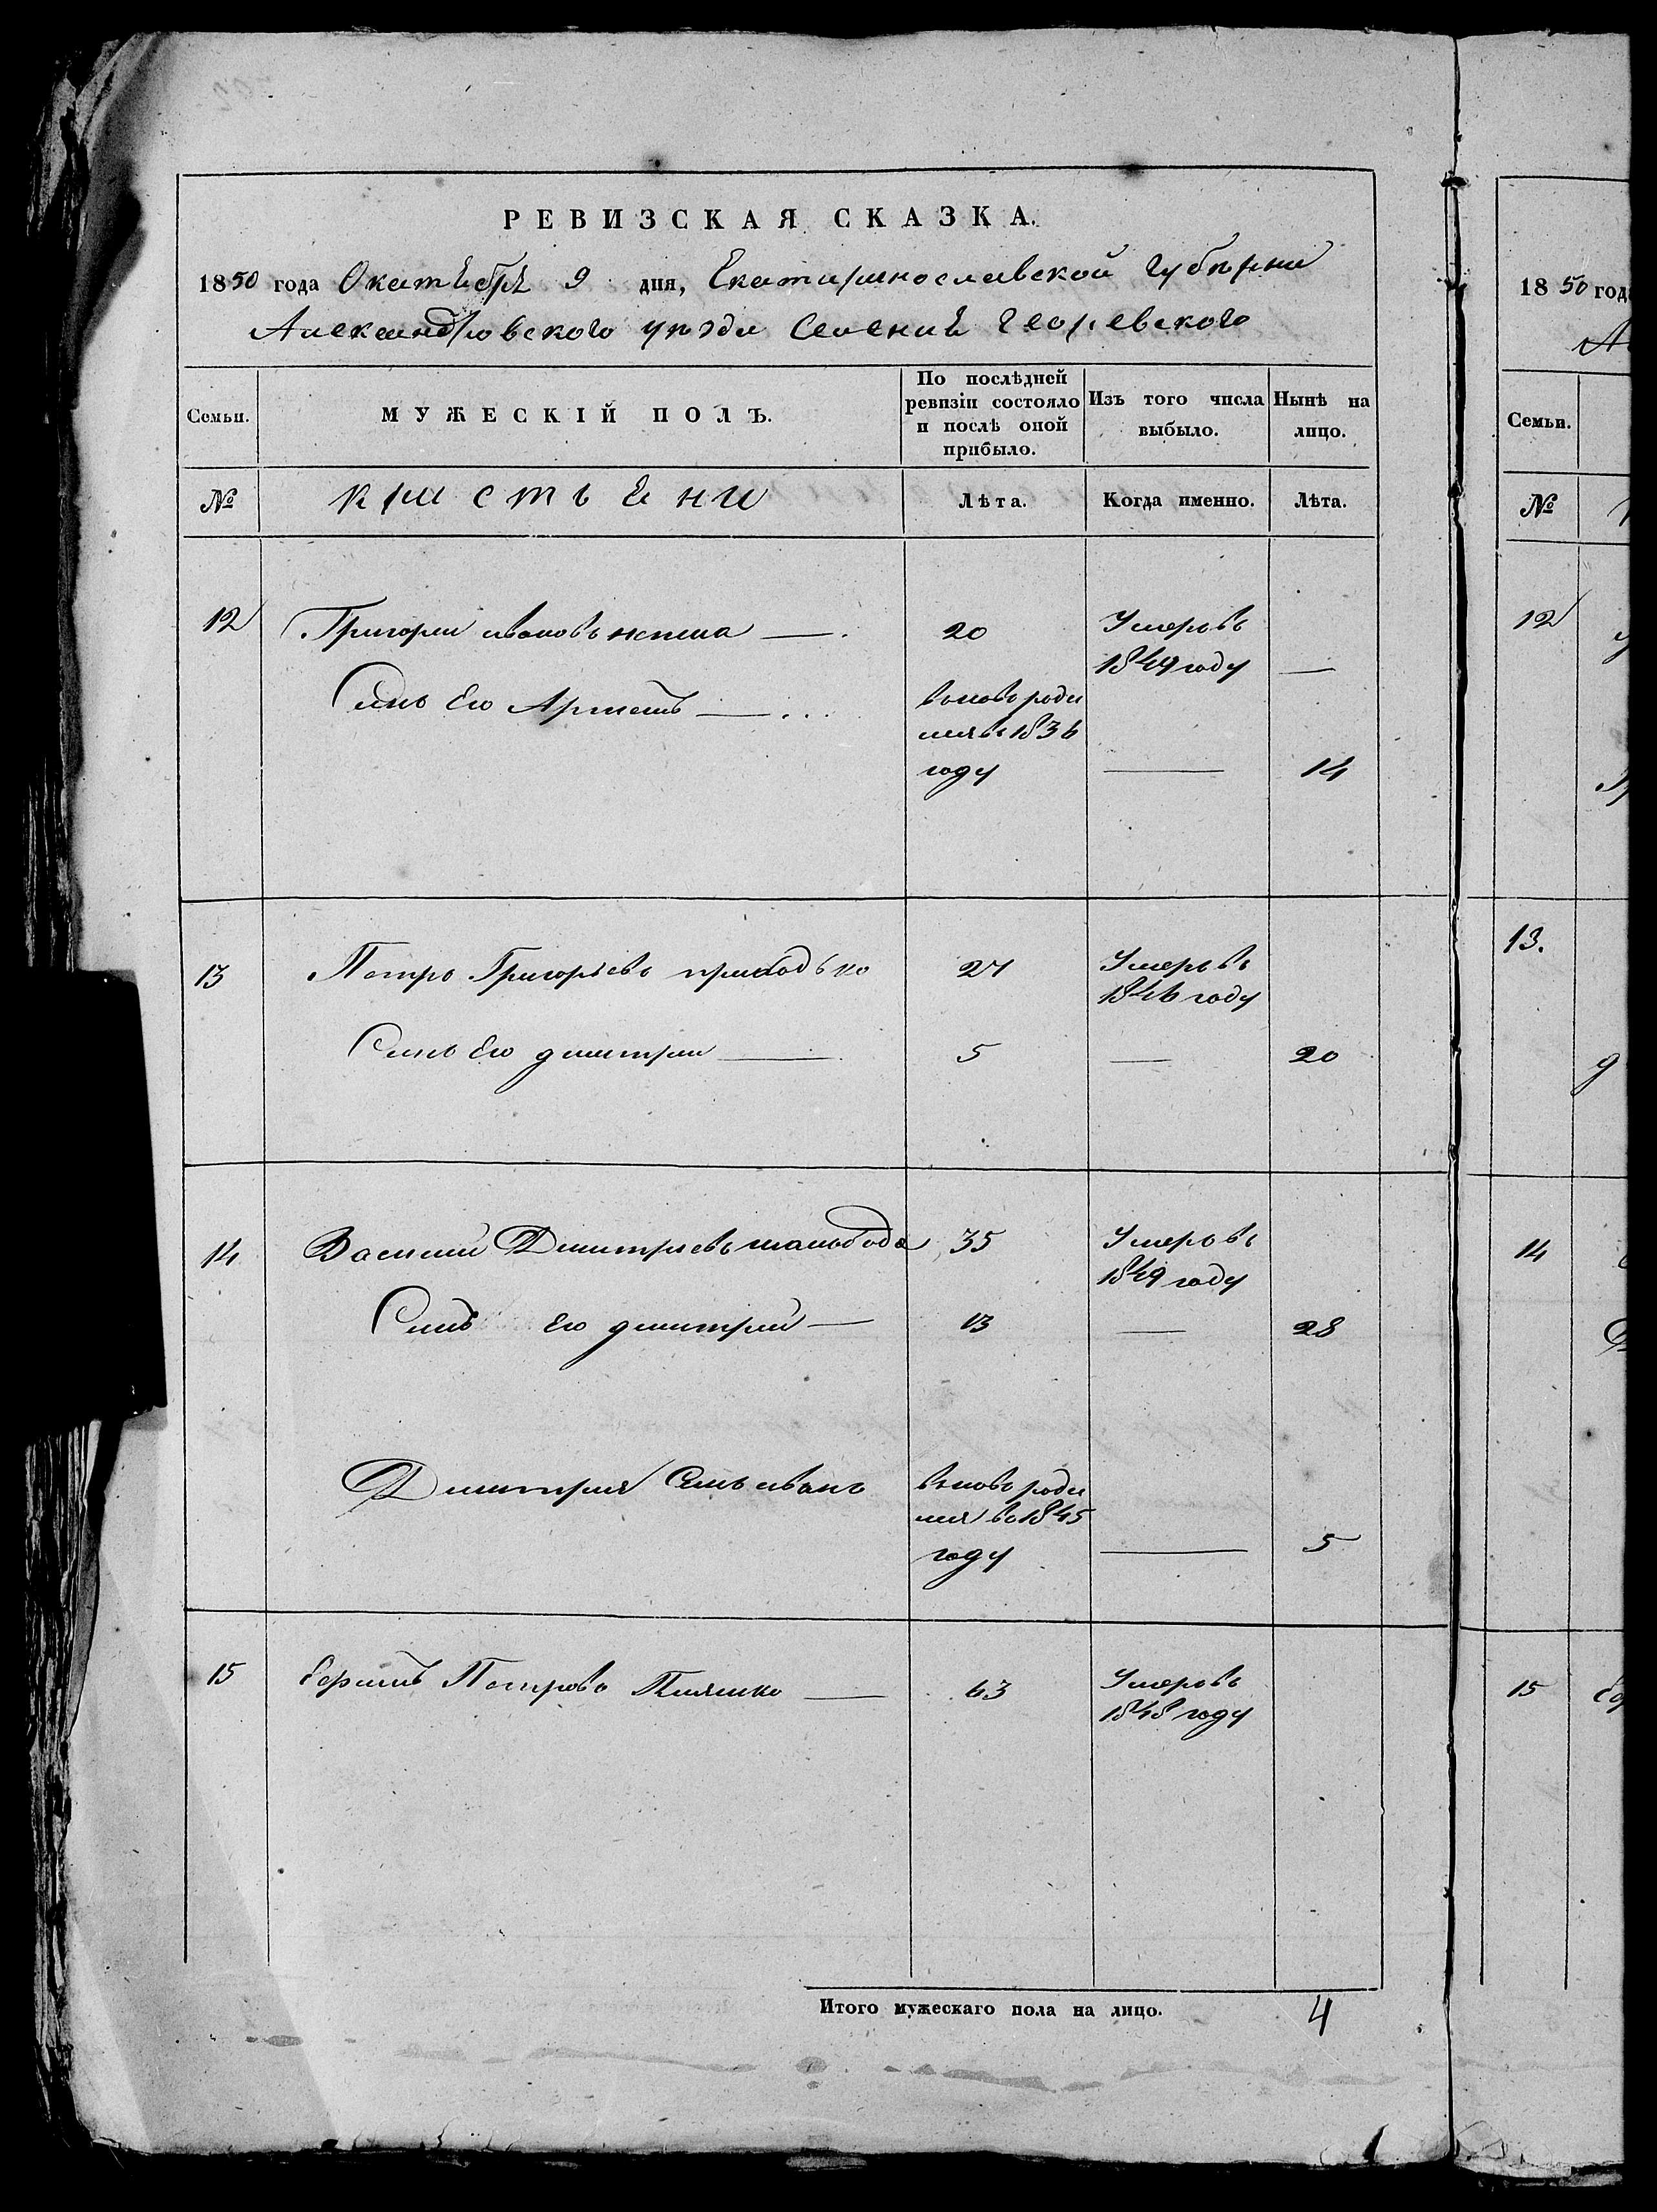 РЕВИЗСКАЯ СКАЗКА.
1850 года Окатября 9 дня, Екатиринославской Губѣрни
Александровского уѣзда Селения Георевского
Семьи.
МУЖЕСКІЙ ПОЛЪ.
По послѣдней ревизіи состояло и послѣ оной прибыло.
Изъ того числа выбыло.
Нынѣ на лицо.
№
Лѣта.
Когда именно.
Лѣта.
12 Григори ивановъ — 20 Умеръ въ
1849 году —
Синъ Его Артемъ — вновь роди
лся въ 1836
году — 14
13 Петро Григорьевъ приходько 27 Умеръ въ
1846 году
Синъ Его дмитри — 5 — 20
14 Василий Дмитриевъ 35 Умеръ въ
1849 году
Синъ Его дмитрий — 13 — 28
Дмитрия Синъ иванъ вновь роди
лся во 1845
году — 5
15 Ефимъ Петровъ — 63 Умеръ въ
1848 году
Итого мужескаго пола на лицо. 4
1850 года
Семьи.
№
12
13.
14
15